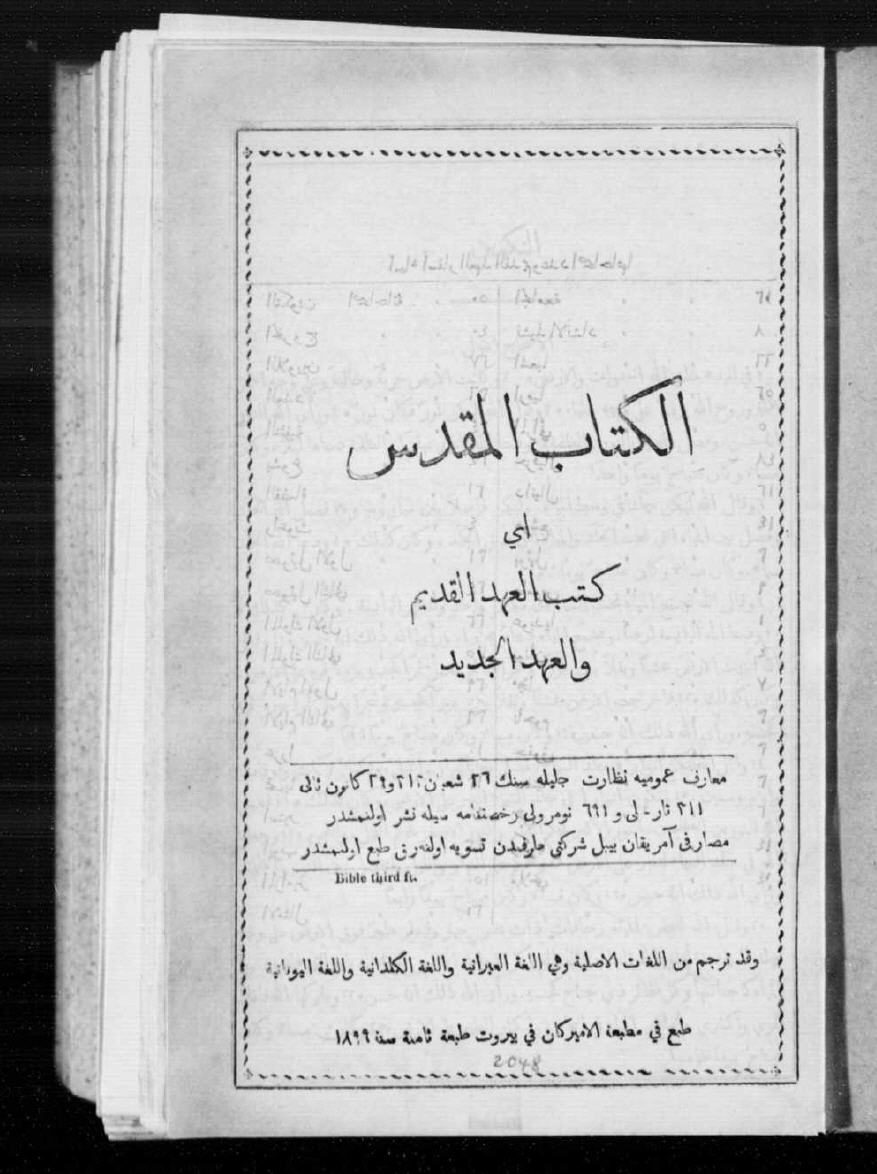 الكتاب المقدس
اي
كتب العهد القديم
والعهد الجديد
معارف عموميه نظارت جليله سنك ٢٦ شعبان ٣١٢ و ٢٩ كانون ثانى
٣١١ تاريخلى و ٦٩١ نومرولى رخصتنامه سيله نشر اولنمشدر
مصارفى آمريقان بيبل شركتى طرفندن تسويه اولنه رق طبع اولنمشدر
Bible third ft.
وقد ترجم من اللغات الاصلية وهي اللغة العبرانية واللغة الكلدانية واللغة اليونانية
طبع في مطبعة الاميركان في بيروت طبعة ثامنة سنة ١٨٩٩
2048